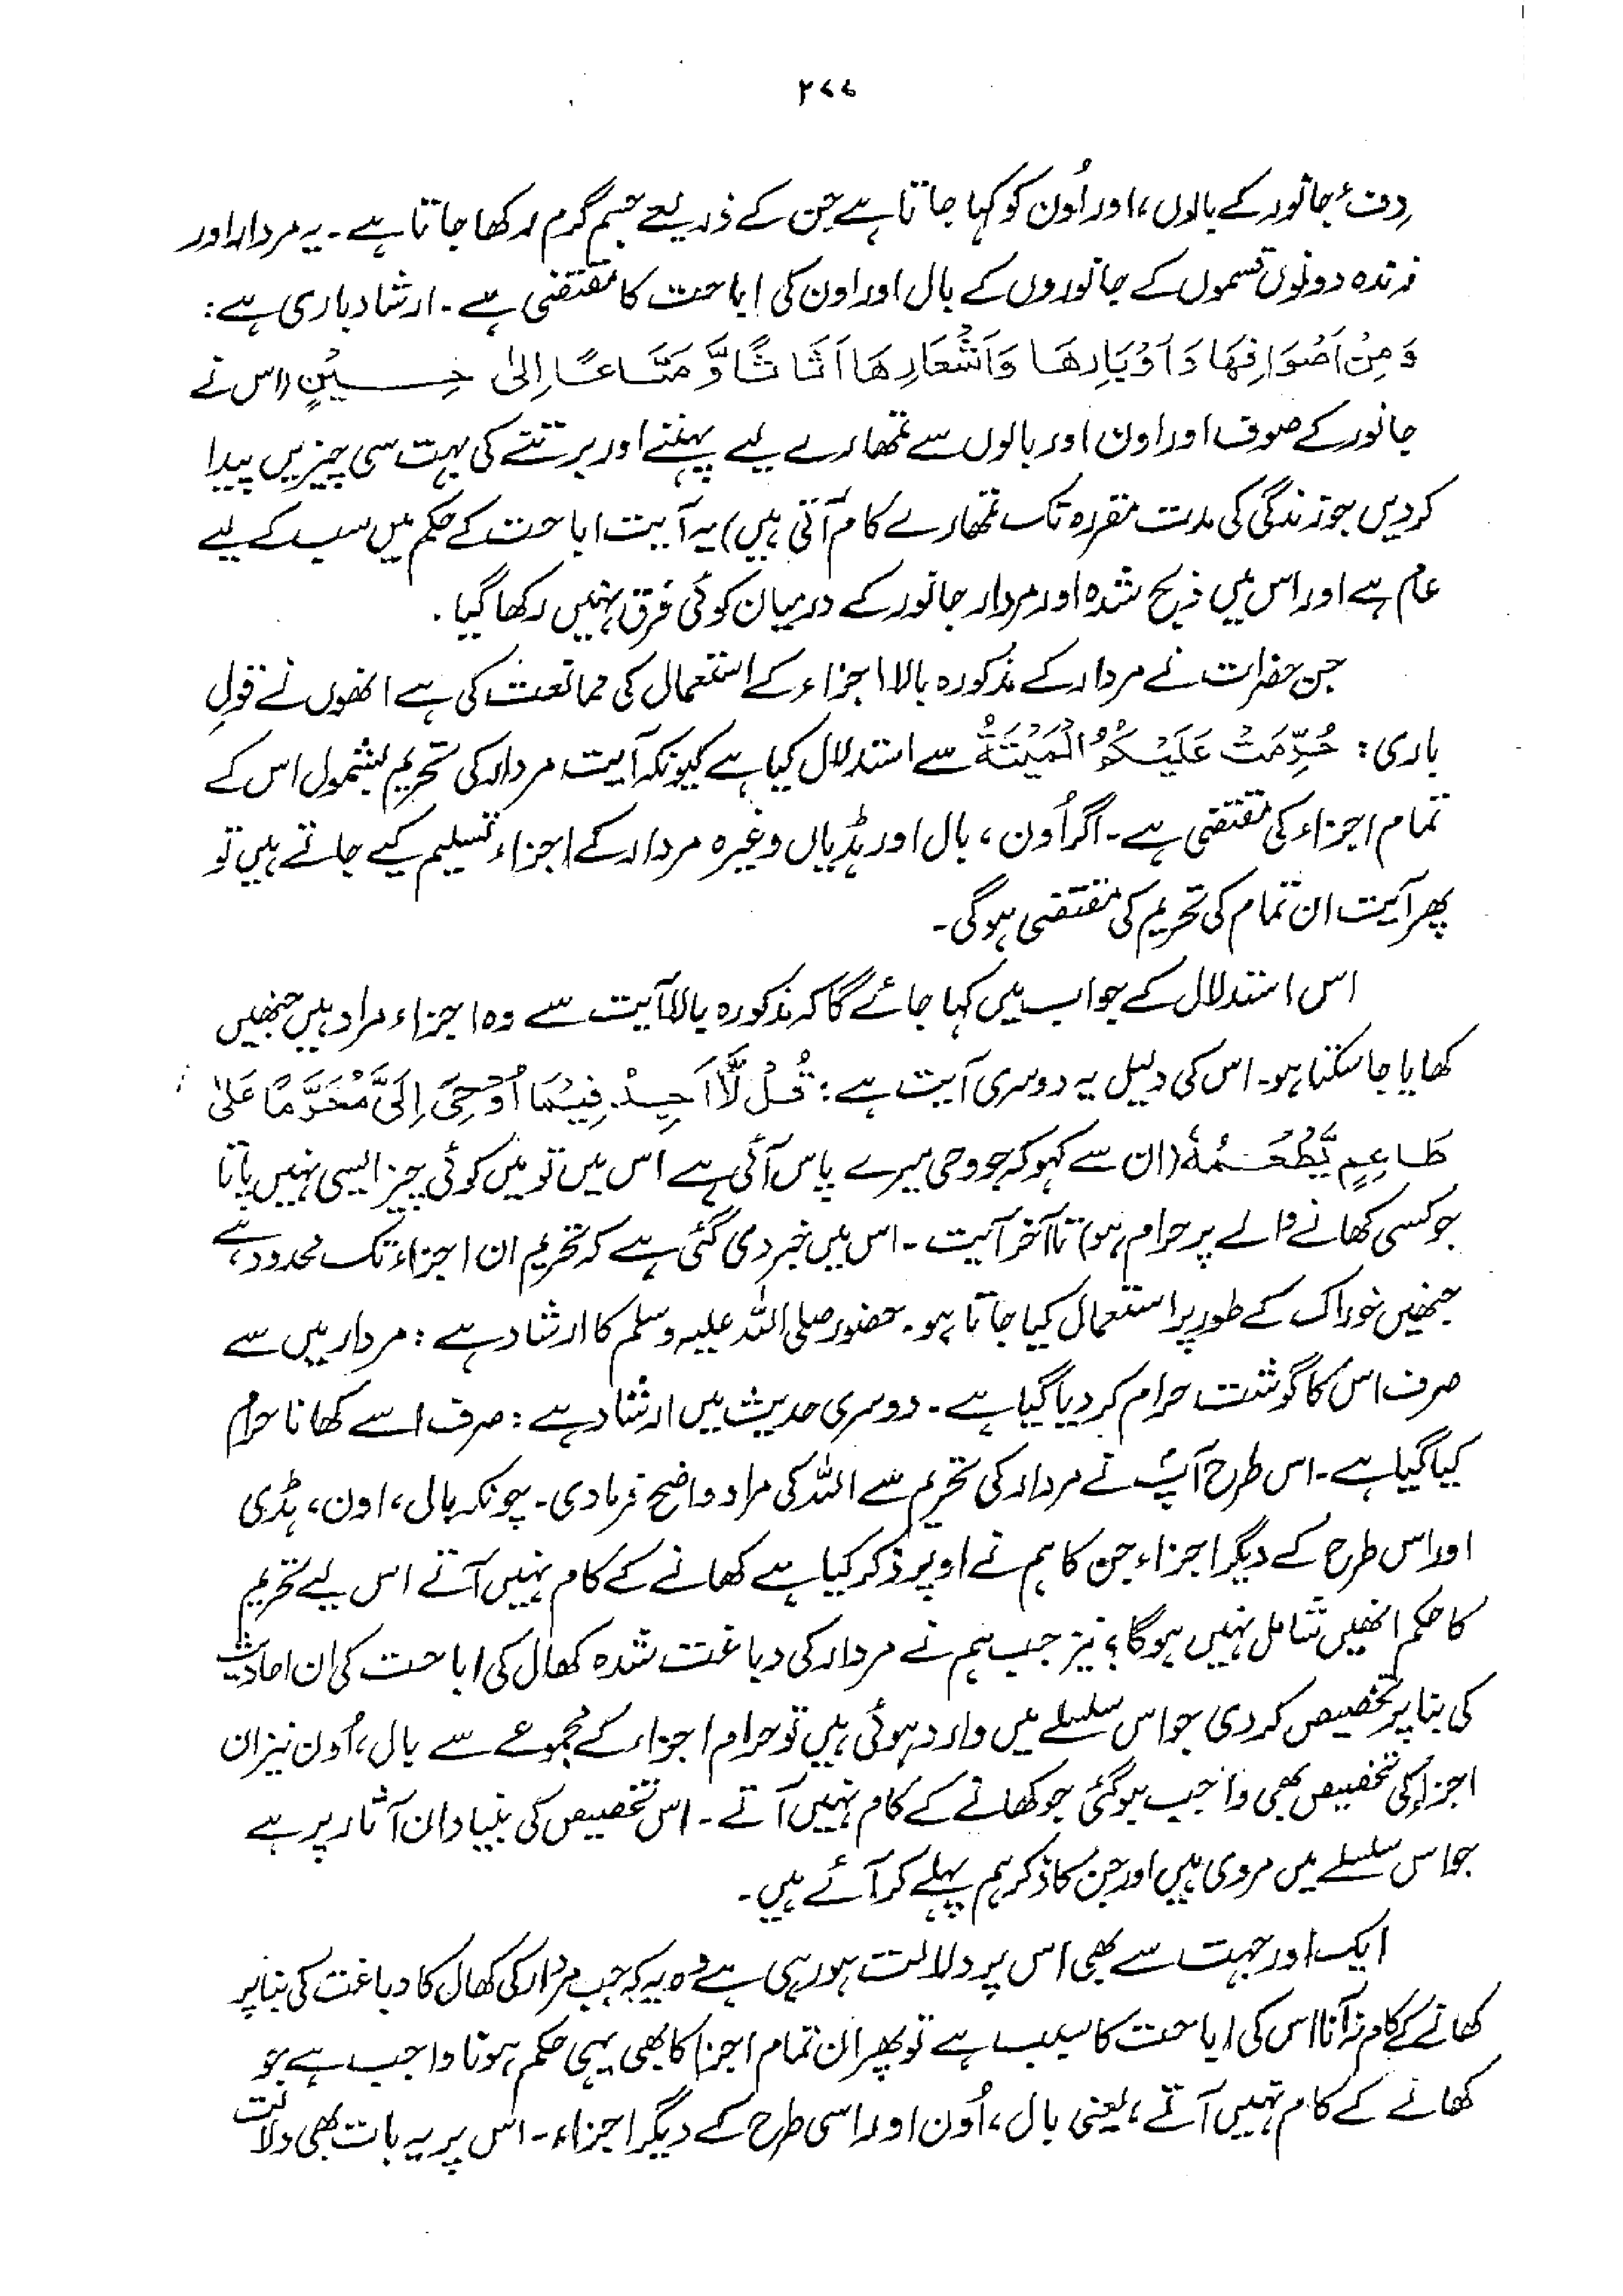 ۲۷۷
دِفءٌ جانور کے بالوں، اور اُون کو کہا جاتا ہے جن کے ذریعے جسم گرم رکھا جاتا ہے۔ یہ مردار اور
زندہ دونوں قسموں کے جانوروں کے بال اور اون کی اباحت کا مقتضی ہے۔ ارشاد باری ہے:
وَمِنْ اَصْوَافِهَا وَاَوْبَارِهَا وَاَشْعَارِهَا اَثَاثًا وَّمَتَاعًا اِلیٰ حِيْنٍ (اس نے
جانور کے صوف اور اون اور بالوں سے تمھارے لیے پہننے اور برتنے کی بہت سی چیزیں پیدا
کردیں جو زندگی کی مدت مقررہ تک تمھارے کام آتی ہیں) یہ آیت اباحت کے حکم میں سب کے لیے
عام ہے اور اس میں ذبح شدہ اور مردار جانور کے درمیان کوئی فرق نہیں رکھا گیا۔
جن حضرات نے مردار کے مذکورہ بالا اجزاء کے استعمال کی ممانعت کی ہے انھوں نے قولِ
باری: حُرِّمَتْ عَلَيْكُمُ الْمَيْتَةُ سے استدلال کیا ہے کیونکہ آیت مردار کی تحریم بشمول اس کے
تمام اجزاء کی مقتضی ہے۔ اگر اُون، بال اور ہڈیاں وغیرہ مردار کے اجزاء تسلیم کیے جاتے ہیں تو
پھر آیت ان تمام کی تحریم کی مقتضی ہوگی۔
اس استدلال کے جواب میں کہا جائے گا کہ مذکورہ بالا آیت سے وہ اجزاء مراد ہیں جنھیں
کھایا جا سکتا ہو۔ اس کی دلیل یہ دوسری آیت ہے: قُلْ لَّا اَجِدُ فِيْمَا اُوْحِیَ اِلَیَّ مُحَرَّمًا عَلیٰ
طَاعِمٍ يَّطْعَمُهٗ (ان سے کہو کہ جو وحی میرے پاس آئی ہے اس میں تو میں کوئی چیز ایسی نہیں پاتا
جو کسی کھانے والے پر حرام ہو) تا آخر آیت۔ اس میں خبر دی گئی ہے کہ تحریم ان اجزاء تک محدود ہے
جنھیں خوراک کے طور پر استعمال کیا جاتا ہو۔ حضور صلی اللہ علیہ وسلم کا ارشاد ہے: مردار میں سے
صرف اس کا گوشت حرام کر دیا گیا ہے۔ دوسری حدیث میں ارشاد ہے: صرف اسے کھانا حرام
کیا گیا ہے۔ اس طرح آپؐ نے مردار کی تحریم سے اللہ کی مراد واضح فرمادی۔ چونکہ بال، اون، ہڈی
اور اس طرح کے دیگر اجزاء جن کا ہم نے اوپر ذکر کیا ہے کھانے کے کام نہیں آتے اس لیے تحریم
کا حکم انھیں شامل نہیں ہوگا؟ نیز جب ہم نے مردار کی دباغت شدہ کھال کی اباحت کی ان احادیث
کی بنا پر تخصیص کر دی جو اس سلسلے میں وارد ہوئی ہیں تو حرام اجزاء کے مجموعے سے بال، اُون نیز ان
اجزاء کی تخصیص بھی واجب ہوگئی جو کھانے کے کام نہیں آتے۔ اس تخصیص کی بنیاد ان آثار پر ہے
جو اس سلسلے میں مروی ہیں اور جن کا ذکر ہم پہلے کر آئے ہیں۔
ایک اور جہت سے بھی اس پر دلالت ہو رہی ہے وہ یہ کہ جب مردار کی کھال کا دباغت کی بنا پر
کھانے کے کام نہ آنا اس کی اباحت کا سبب ہے تو پھر ان تمام اجزا کا بھی یہی حکم ہونا واجب ہے جو
کھانے کے کام نہیں آتے، یعنی بال، اُون اور اسی طرح کے دیگر اجزاء۔ اس پر یہ بات بھی دلالت